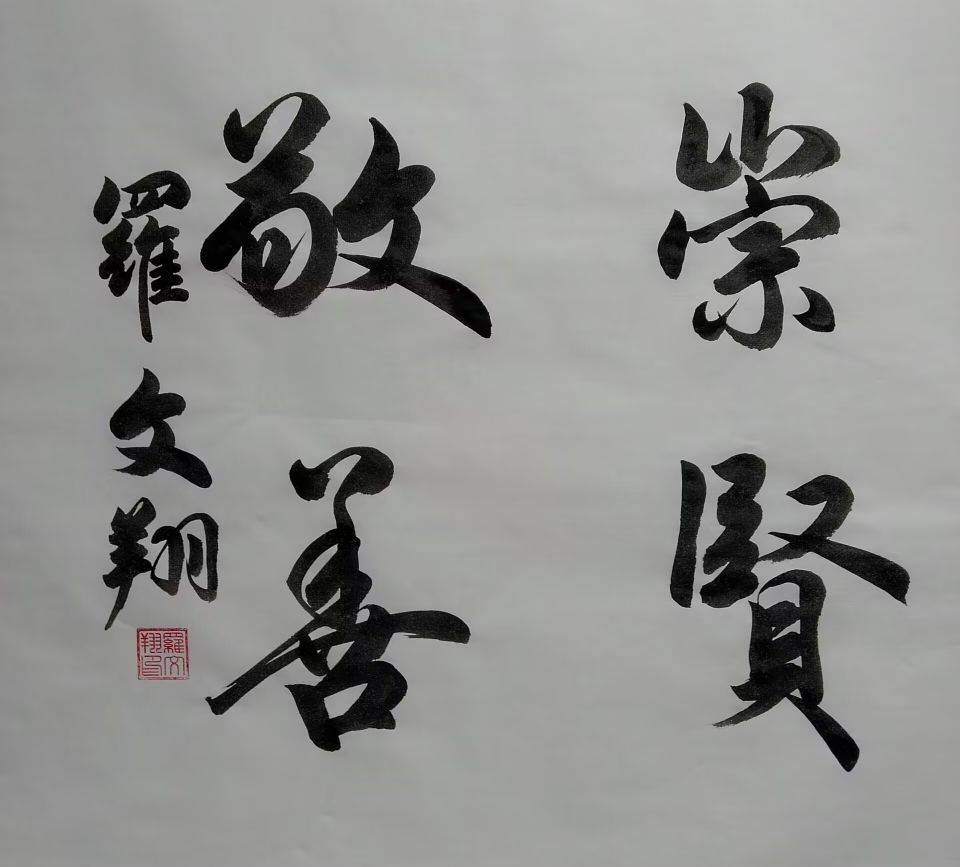 崇賢
敬善
羅文翔
羅文翔印